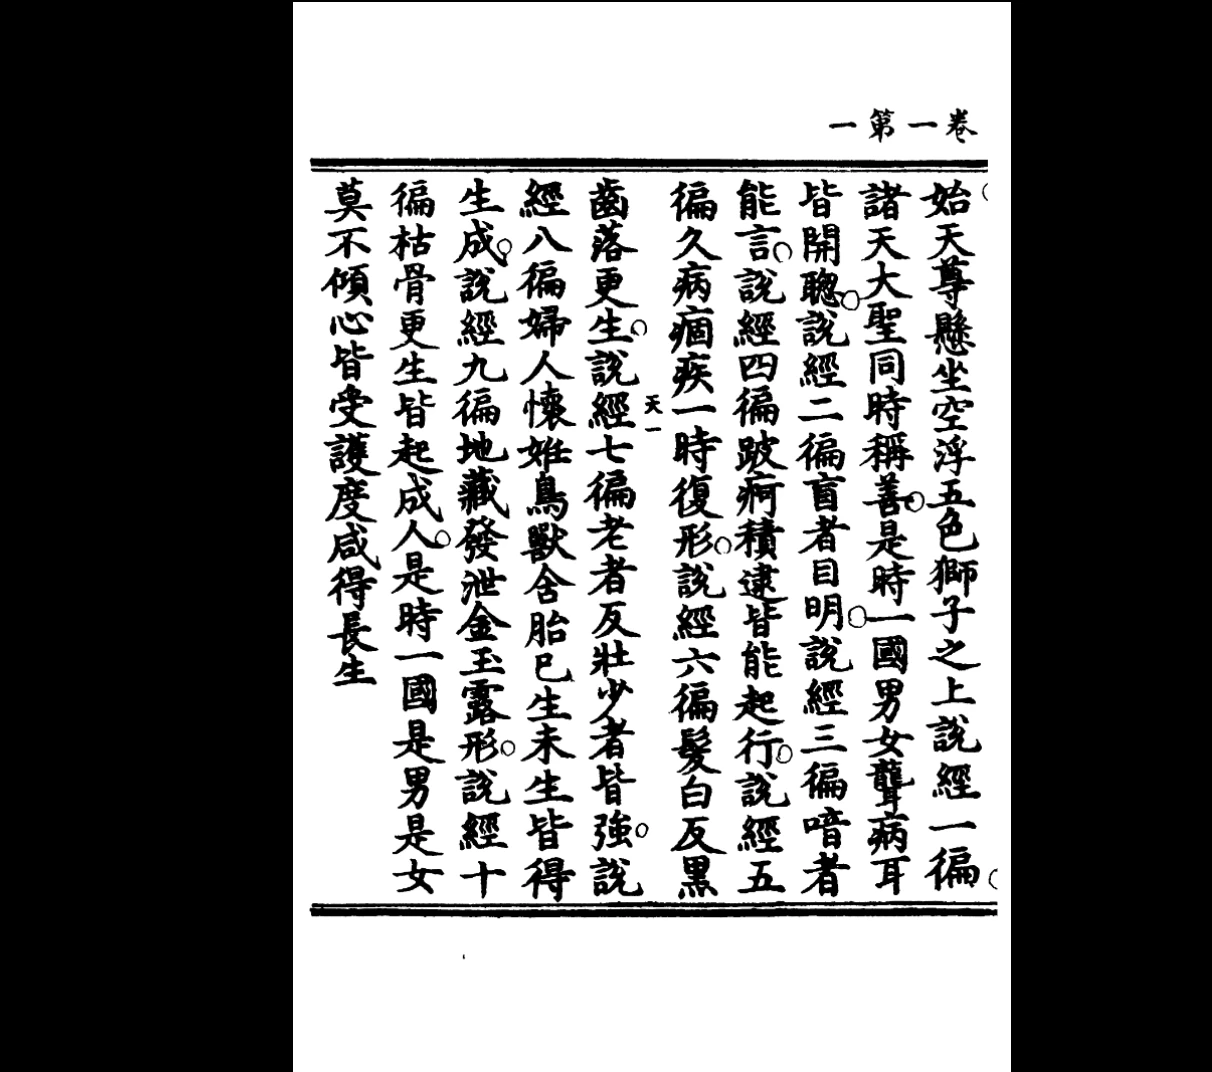 卷一第一
始天尊懸坐空浮五色獅子之上說經一徧
諸天大聖同時稱善是時一國男女聾病耳
皆開聰說經二徧盲者目明說經三徧喑者
能言說經四徧跛痾積逮皆能起行說經五
徧久病痼疾一時復形說經六徧髮白反黑
天一
齒落更生說經七徧老者反壯少者皆強說
經八徧婦人懷妊鳥獸含胎已生未生皆得
生成說經九徧地藏發泄金玉露形說經十
徧枯骨更生皆起成人是時一國是男是女
莫不傾心皆受護度咸得長生